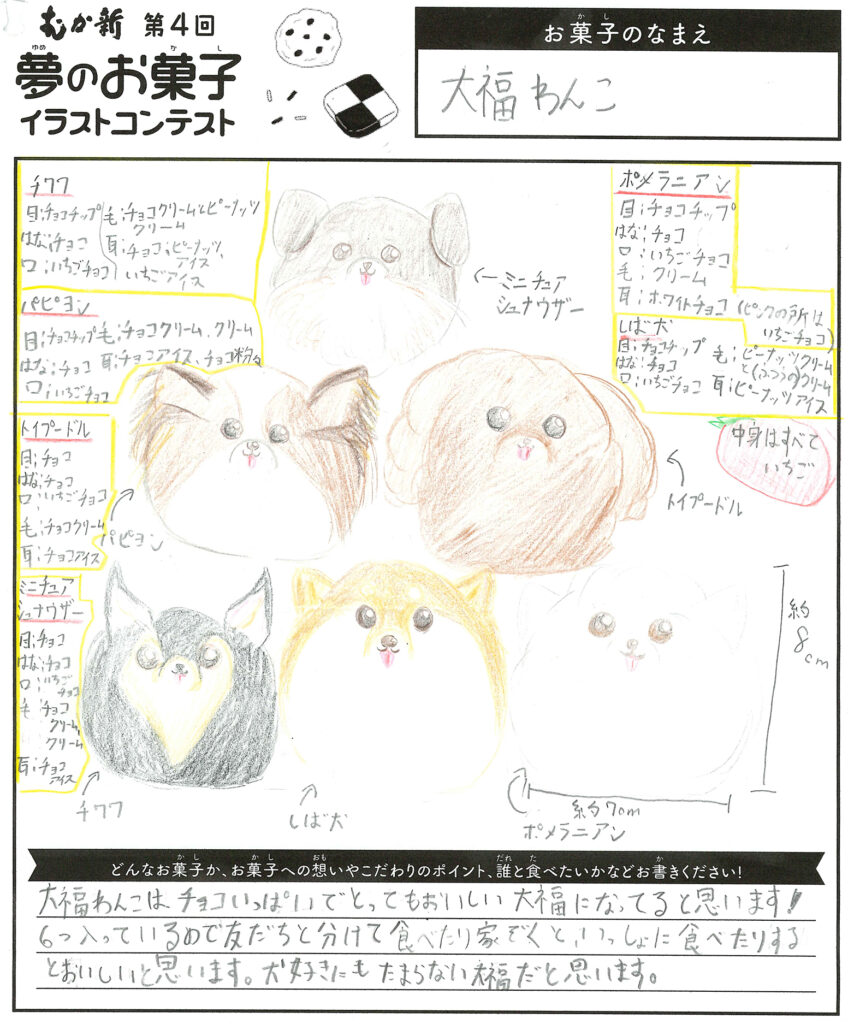 むか新 第4回
夢のお菓子
ゆめ か し
イラストコンテスト
お菓子のなまえ
か し
大福わんこ
チワワ
目;チョコチップ
はな;チョコ
口;いちごチョコ
毛;チョコクリームとピーナッツ
クリーム
耳;チョコ、ピーナッツ、
アイス
いちごアイス
パピヨン
目;チョコチップ
はな;チョコ
口;いちごチョコ
毛;チョコクリーム、クリーム
耳;チョコアイス、チョコ粉々
トイプードル
目;チョコ
はな;チョコ
口;いちごチョコ
毛;チョコクリーム
耳;チョコアイス
ミニチュア
シュナウザー
目;チョコ
はな;チョコ
口;いちご
チョコ
毛;チョコ
クリーム、
クリーム
耳;チョコ
アイス
ポメラニアン
目;チョコチップ
はな;チョコ
口;いちごチョコ
毛;クリーム
耳;ホワイトチョコ(ピンクの所は
いちごチョコ)
しば犬
目;チョコチップ
はな;チョコ
口;いちごチョコ
毛;ピーナッツクリーム
と(ふつうの)クリーム
耳;ピーナッツアイス
中身はすべて
いちご
←ミニチュア
シュナウザー
パピヨン
トイプードル
チワワ
しば犬
ポメラニアン
約
8cm
約7cm
か し か し おも だれ た か
どんなお菓子か、お菓子への想いやこだわりのポイント、誰と食べたいかなどお書きください!
大福わんこは、チョコいっぱいでとってもおいしい大福になってると思います!
6つ入っているので友だちと分けて食べたり家ぞくと、いっしょに食べたりする
とおいしいと思います。犬好きにもたまらない大福だと思います。